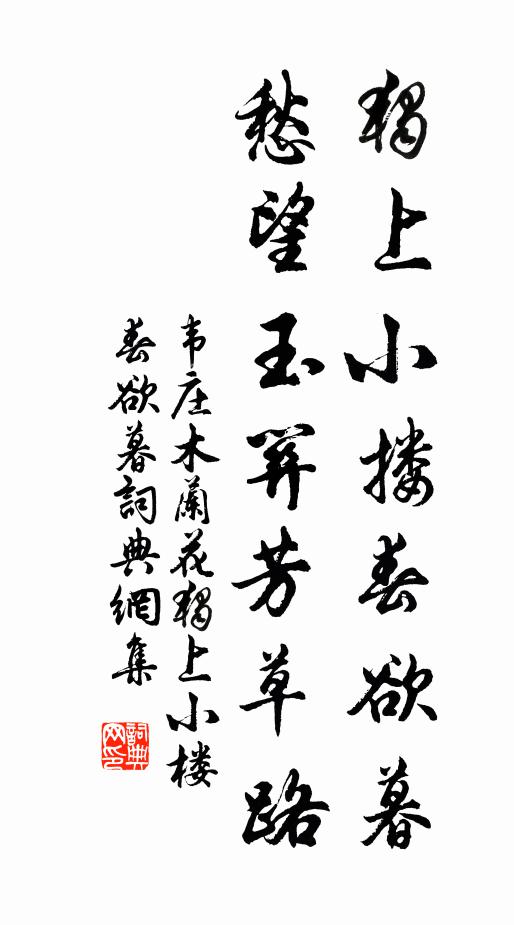 獨上小楼春欲暮
愁望玉關芳草路
韦庄木蘭花獨上小楼
春欲暮詞典網集
詞典
网印